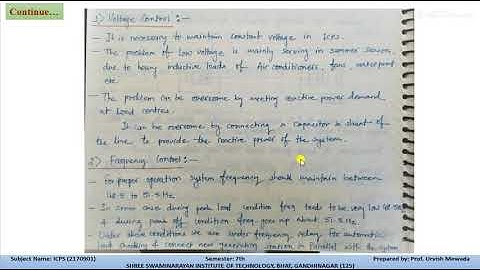 Continue...
1) Voltage Control :-
- It is necessary to maintain constant voltage in ICPS.
- The problem of low voltage is mainly serving in summer season
due to heavy inductive loads of Air conditioners, fans, waterpump
etc.
- The problem can be overcome by meeting reactive power demand
at load centres.
It can be overcome by connecting a capacitor in shunt of
the line to provide the reactive power of the system.
2) Frequency Control :-
- For proper operation system frequency should maintain between
48.5 to 51.5 Hz
- In some case during peak load condition freq. tends to be very low
& during peak off condition freq. goes up about 51.5 Hz.
- Under these conditions we are under frequency relay for automatic
load shedding & connect new generating station in parallel with the system
Subject Name: ICPS (2170901) Semester: 7th Prepared by: Prof. Urvish Mewada
SHREE SWAMINARAYAN INSTITUTE OF TECHNOLOGY, BHAT, GANDHINAGAR (125)